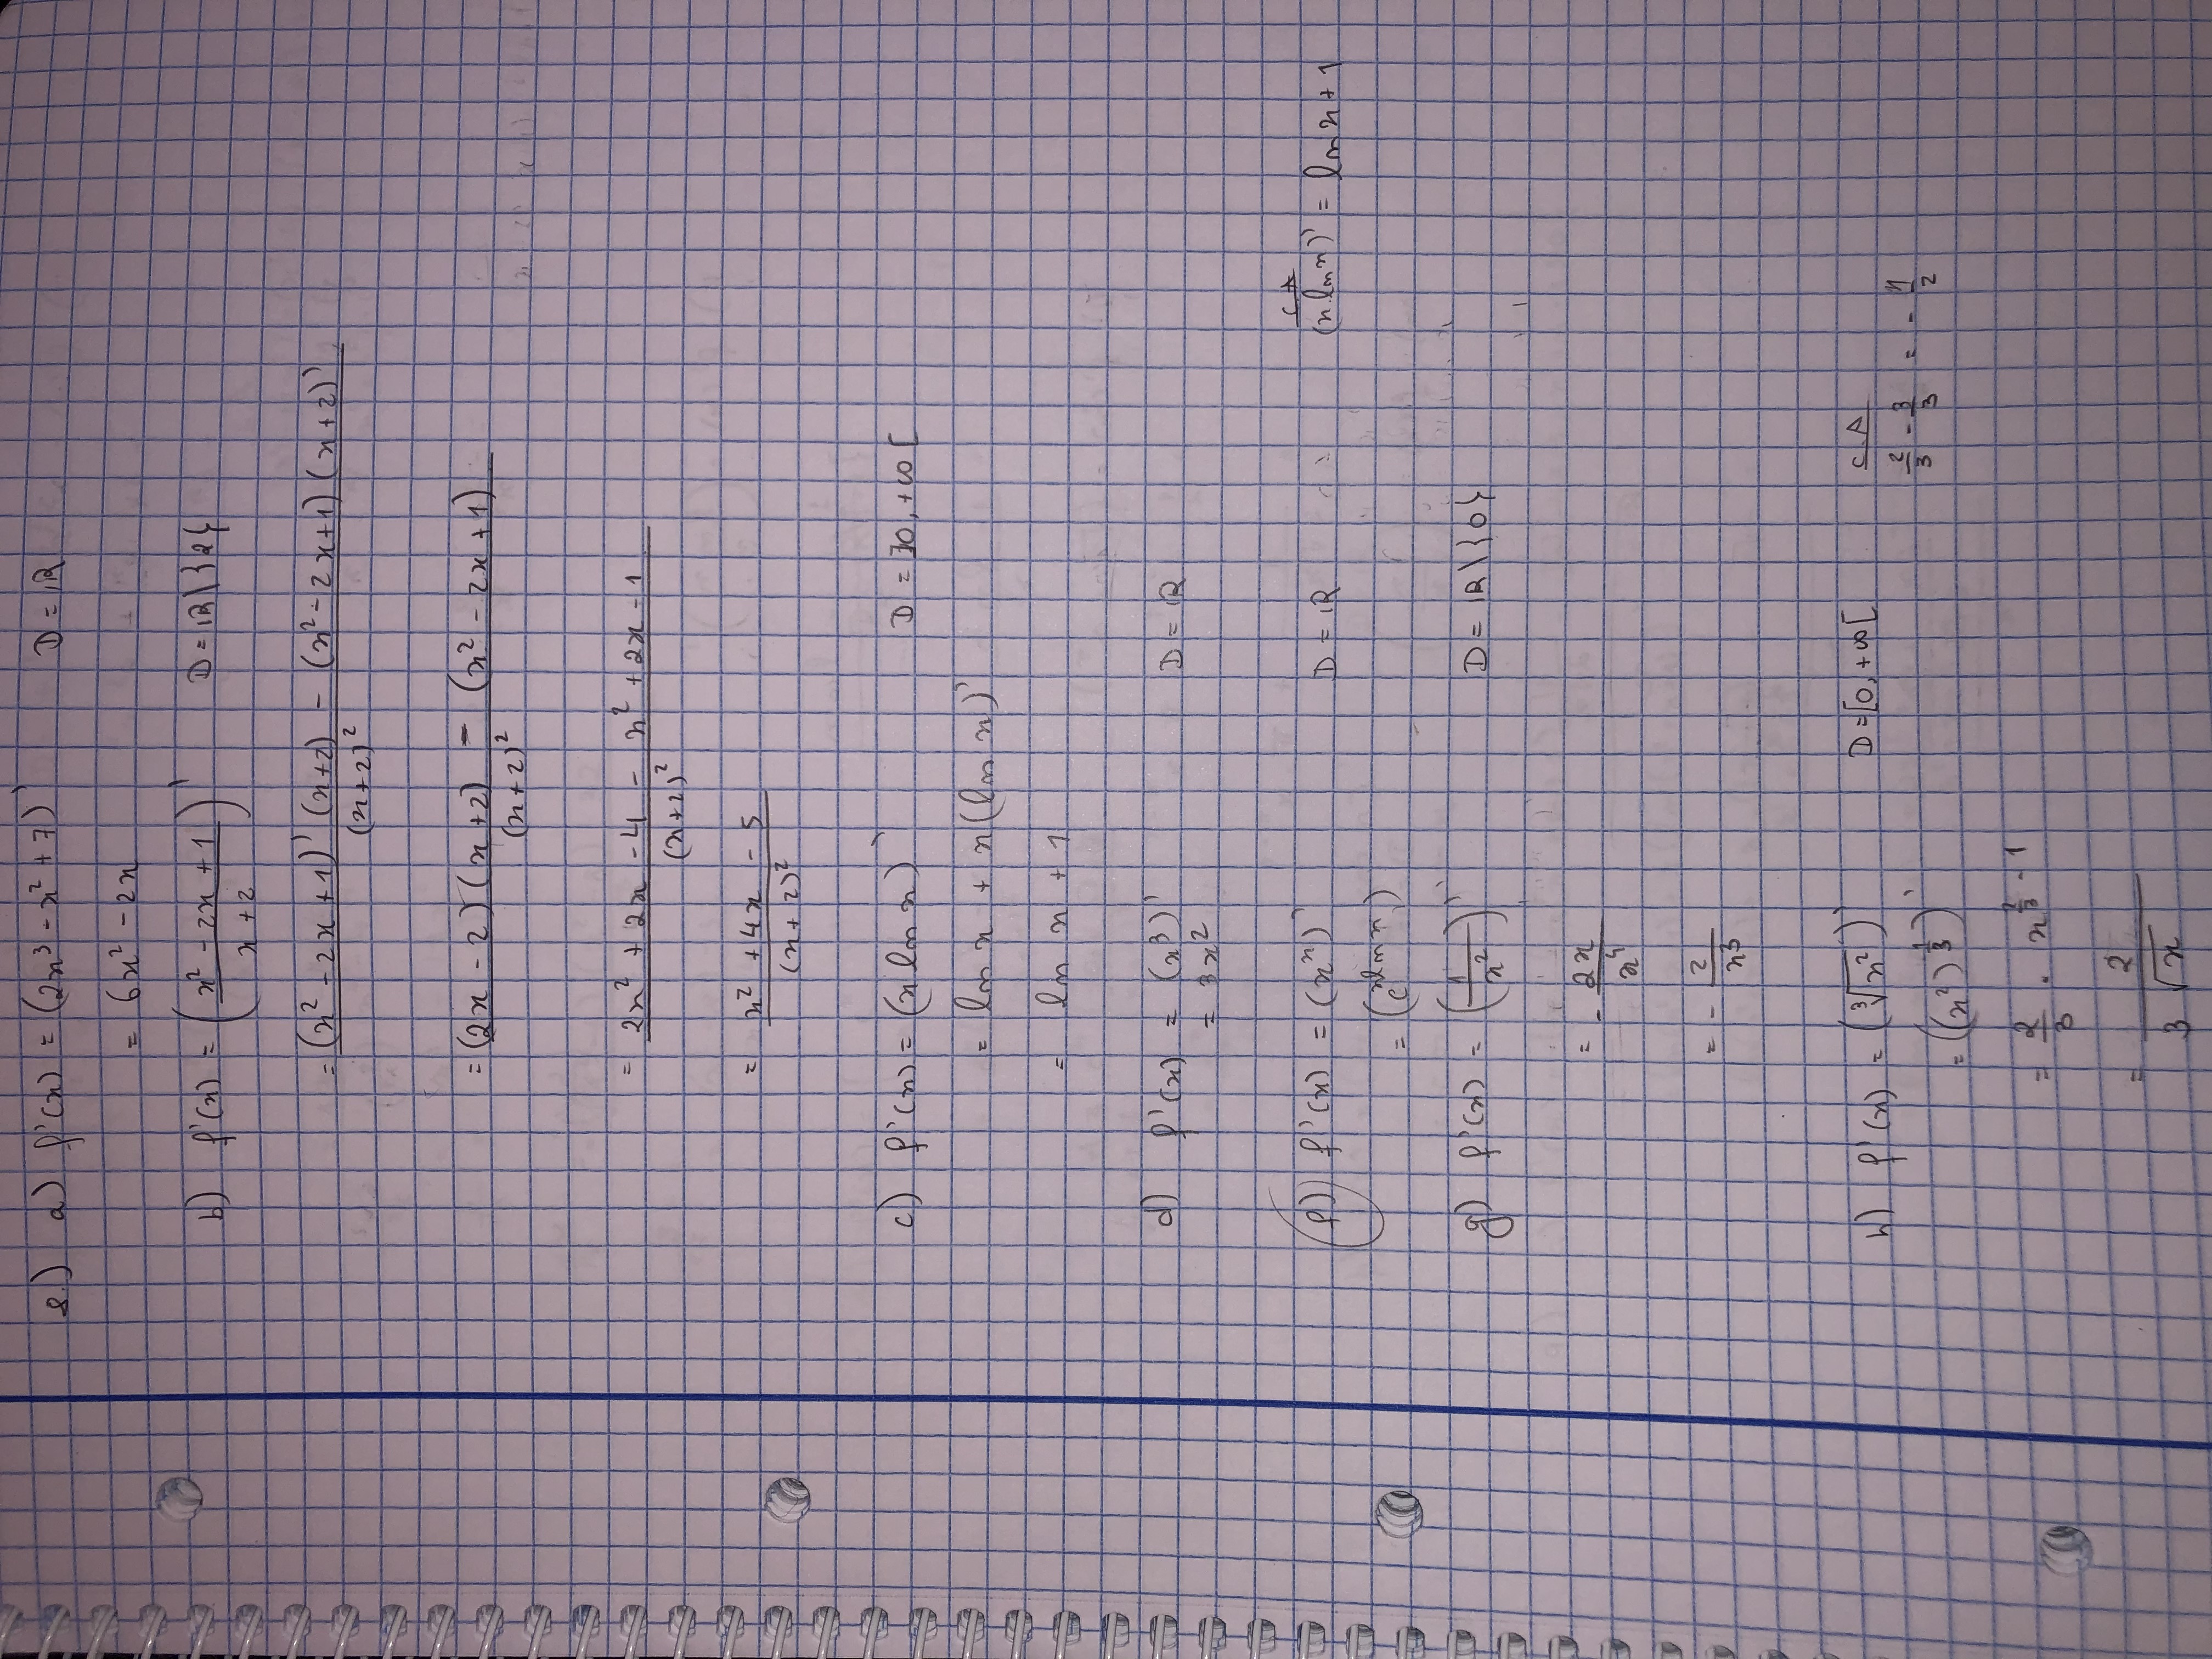 8.) a) f'(x) = (2x³ - x² + 7)' D = ℝ
= 6x² - 2x
b) f'(x) = ((x² - 2x + 1)/(x + 2))' D = ℝ\{2}
= ((x² - 2x + 1)' (x+2) - (x² - 2x + 1) (x + 2)')/(x+2)²
= ((2x - 2) (x + 2) - (x² - 2x + 1))/(x+2)²
= (2x² + 2x - 4 - x² + 2x - 1)/(x+2)²
= (x² + 4x - 5)/(x + 2)²
c) f'(x) = (x ln x)' D = ]0, +∞[
= ln x + x(ln x)'
= ln x + 1
d) f'(x) = (x³)' D = ℝ
= 3x²
f) f'(x) = (xˣ)' D = ℝ
C.A
(x.ln x)' = ln x + 1
= (e^(x ln x))
g) f'(x) = (1/x²)' D = ℝ\{0}
= - 2x/x⁴
= - 2/x³
h) f'(x) = (∛x²)' D = [0, +∞[
C.A
2/3 - 3/3 = - 1/2
= ((x²)^(1/3))'
= 2/3 · x^(2/3 - 1)
= 2/(3 √x)